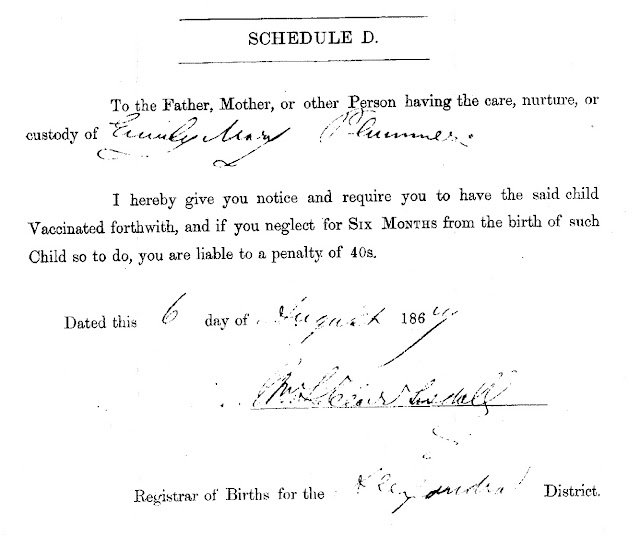 SCHEDULE D.
To the Father, Mother, or other Person having the care, nurture, or
custody of Emily Mary Plummer.
I hereby give you notice and require you to have the said child
Vaccinated forthwith, and if you neglect for SIX MONTHS from the birth of such
Child so to do, you are liable to a penalty of 40s.
Dated this 6 day of August 186
Registrar of Births for the District.